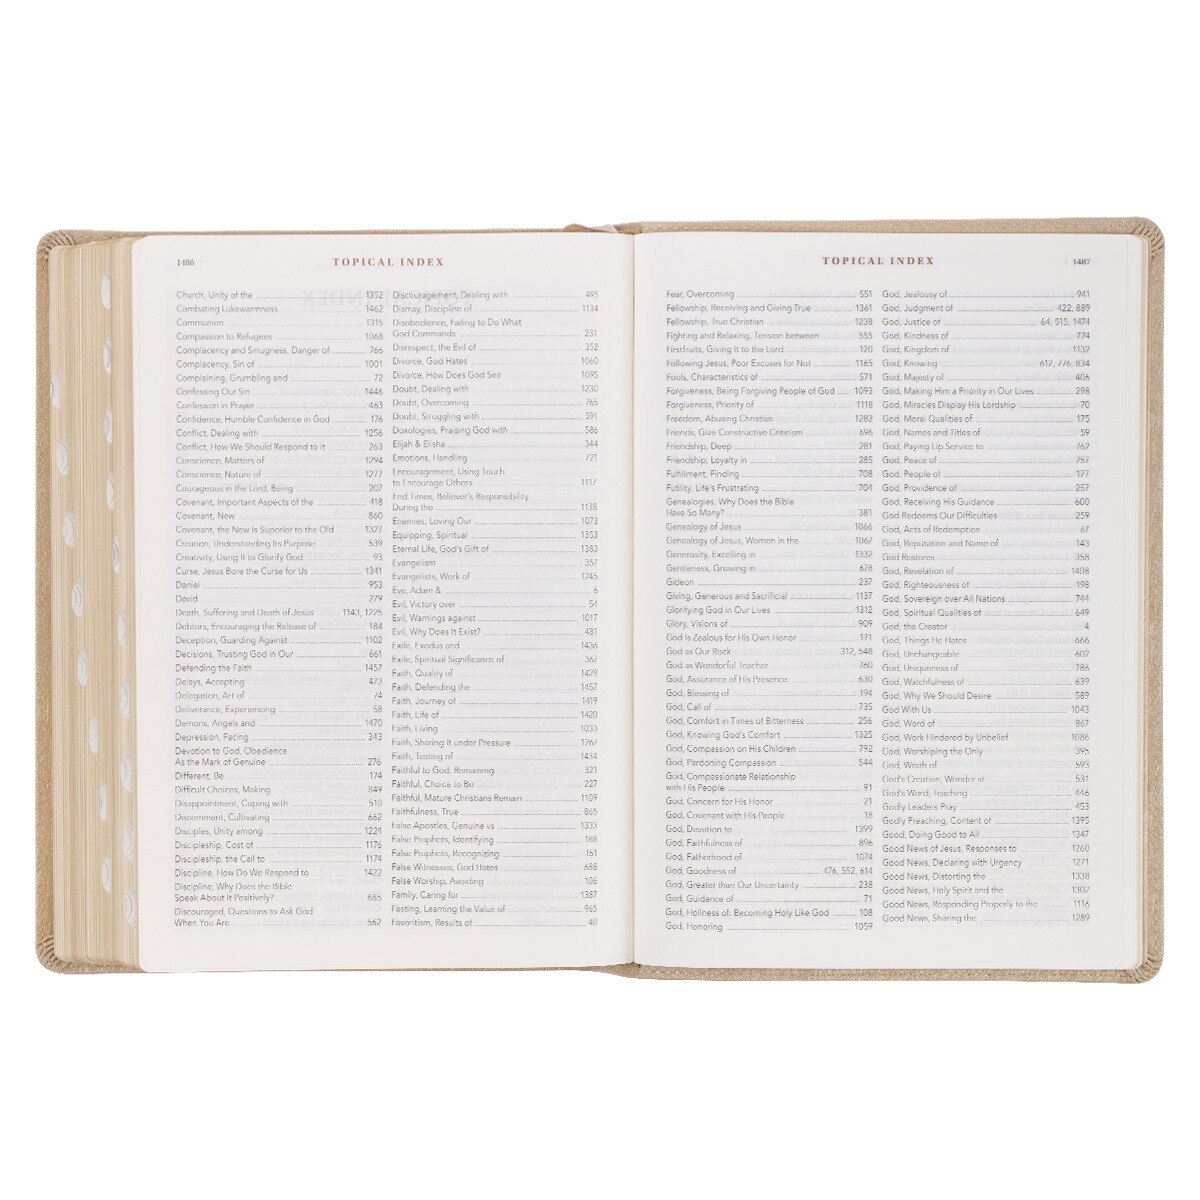 1486
TOPICAL INDEX
Church, Unity of the 1352
Combating Lukewarmness 1462
Communion 1315
Compassion to Refugees 1068
Complacency and Smugness, Danger of 766
Complacency, Sin of 1001
Complaining, Grumbling and 72
Confessing Our Sin 1446
Confession in Prayer 463
Confidence, Humble Confidence in God 176
Conflict, Dealing with 1256
Conflict, How We Should Respond to It 263
Conscience, Matters of 1294
Conscience, Nature of 1277
Courageous in the Lord, Being 207
Covenant, Important Aspects of the 418
Covenant, New 860
Covenant, the New Is Superior to the Old 1327
Creation, Understanding Its Purpose 539
Creativity, Using It to Glorify God 93
Curse, Jesus Bore the Curse for Us 1341
Daniel 953
David 279
Death, Suffering and Death of Jesus 1143, 1225
Debtors, Encouraging the Release of 184
Deception, Guarding Against 1102
Decisions, Trusting God in Our 661
Defending the Faith 1457
Delays, Accepting 473
Delegation, Art of 74
Deliverance, Experiencing 58
Demons, Angels and 1470
Depression, Facing 343
Devotion to God, Obedience
As the Mark of Genuine 276
Different, Be 174
Difficult Choices, Making 849
Disappointment, Coping with 510
Discernment, Cultivating 662
Disciples, Unity among 1224
Discipleship, Cost of 1176
Discipleship, the Call to 1174
Discipline, How Do We Respond to 1422
Discipline, Why Does the Bible
Speak About It Positively? 665
Discouraged, Questions to Ask God
When You Are 562
Discouragement, Dealing with 495
Dismay, Discipline of 1134
Disobedience, Failing to Do What
God Commands 231
Disrespect, the Evil of 352
Divorce, God Hates 1060
Divorce, How Does God See 1095
Doubt, Dealing with 1230
Doubt, Overcoming 765
Doubt, Struggling with 591
Doxologies, Praising God with 586
Elijah & Elisha 344
Emotions, Handling 721
Encouragement, Using Touch
to Encourage Others 1117
End Times, Believer's Responsibility
During the 1138
Enemies, Loving Our 1073
Equipping, Spiritual 1353
Eternal Life, God's Gift of 1383
Evangelism 357
Evangelists, Work of 1245
Eve, Adam & 6
Evil, Victory over 54
Evil, Warnings against 1017
Evil, Why Does It Exist? 481
Exile, Exodus and 1436
Exile, Spiritual Significance of 367
Faith, Quality of 1429
Faith, Defending the 1457
Faith, Journey of 1419
Faith, Life of 1420
Faith, Living 1033
Faith, Sharing It under Pressure 1267
Faith, Testing of 1434
Faithful to God, Remaining 321
Faithful, Choice to Be 227
Faithful, Mature Christians Remain 1109
Faithfulness, True 865
False Apostles, Genuine vs 1333
False Prophets, Identifying 188
False Prophets, Recognizing 151
False Witnesses, God Hates 688
False Worship, Avoiding 106
Family, Caring for 1387
Fasting, Learning the Value of 965
Favoritism, Results of 40
TOPICAL INDEX
1487
Fear, Overcoming 551
Fellowship, Receiving and Giving True 1361
Fellowship, True Christian 1238
Fighting and Relaxing, Tension between 555
Firstfruits, Giving It to the Lord 120
Following Jesus, Poor Excuses for Not 1165
Fools, Characteristics of 571
Forgiveness, Being Forgiving People of God 1093
Forgiveness, Priority of 1118
Freedom, Abusing Christian 1282
Friends, Give Constructive Criticism 696
Friendship, Deep 281
Friendship, Loyalty in 285
Fulfillment, Finding 708
Futility, Life's Frustrating 704
Genealogies, Why Does the Bible
Have So Many? 381
Genealogy of Jesus 1066
Genealogy of Jesus, Women in the 1067
Generosity, Excelling in 1332
Gentleness, Growing in 678
Gideon 237
Giving, Generous and Sacrificial 1137
Glorifying God in Our Lives 1312
Glory, Visions of 909
God Is Zealous for His Own Honor 171
God as Our Rock 312, 548
God as Wonderful Teacher 760
God, Assurance of His Presence 630
God, Blessing of 194
God, Call of 735
God, Comfort in Times of Bitterness 256
God, Knowing God's Comfort 1325
God, Compassion on His Children 792
God, Pardoning Compassion 544
God, Compassionate Relationship
with His People 91
God, Concern for His Honor 21
God, Covenant with His People 18
God, Devotion to 1399
God, Faithfulness of 896
God, Fatherhood of 1074
God, Goodness of 476, 552, 614
God, Greater than Our Uncertainty 238
God, Guidance of 71
God, Holiness of: Becoming Holy Like God 108
God, Honoring 1059
God, Jealousy of 941
God, Judgment of 422, 889
God, Justice of 64, 515, 1474
God, Kindness of 774
God, Kingdom of 1132
God, Knowing 612, 776, 834
God, Majesty of 406
God, Making Him a Priority in Our Lives 298
God, Miracles Display His Lordship 70
God, Moral Qualities of 175
God, Names and Titles of 59
God, Paying Lip Service to 762
God, Peace of 757
God, People of 177
God, Providence of 257
God, Receiving His Guidance 600
God Redeems Our Difficulties 259
God, Acts of Redemption 67
God, Reputation and Name of 143
God Restores 358
God, Revelation of 1408
God, Righteousness of 198
God, Sovereign over All Nations 744
God, Spiritual Qualities of 649
God, the Creator 4
God, Things He Hates 666
God, Unchangeable 602
God, Uniqueness of 786
God, Watchfulness of 639
God, Why We Should Desire 589
God With Us 1043
God, Word of 867
God, Work Hindered by Unbelief 1086
God, Worshiping the Only 395
God, Wrath of 593
God's Creation, Wonder at 531
God's Word, Teaching 446
Godly Leaders Pray 453
Godly Preaching, Content of 1395
Good, Doing Good to All 1347
Good News of Jesus, Responses to 1260
Good News, Declaring with Urgency 1271
Good News, Distorting the 1338
Good News, Holy Spirit and the 1302
Good News, Responding Properly to the 1116
Good News, Sharing the 1289